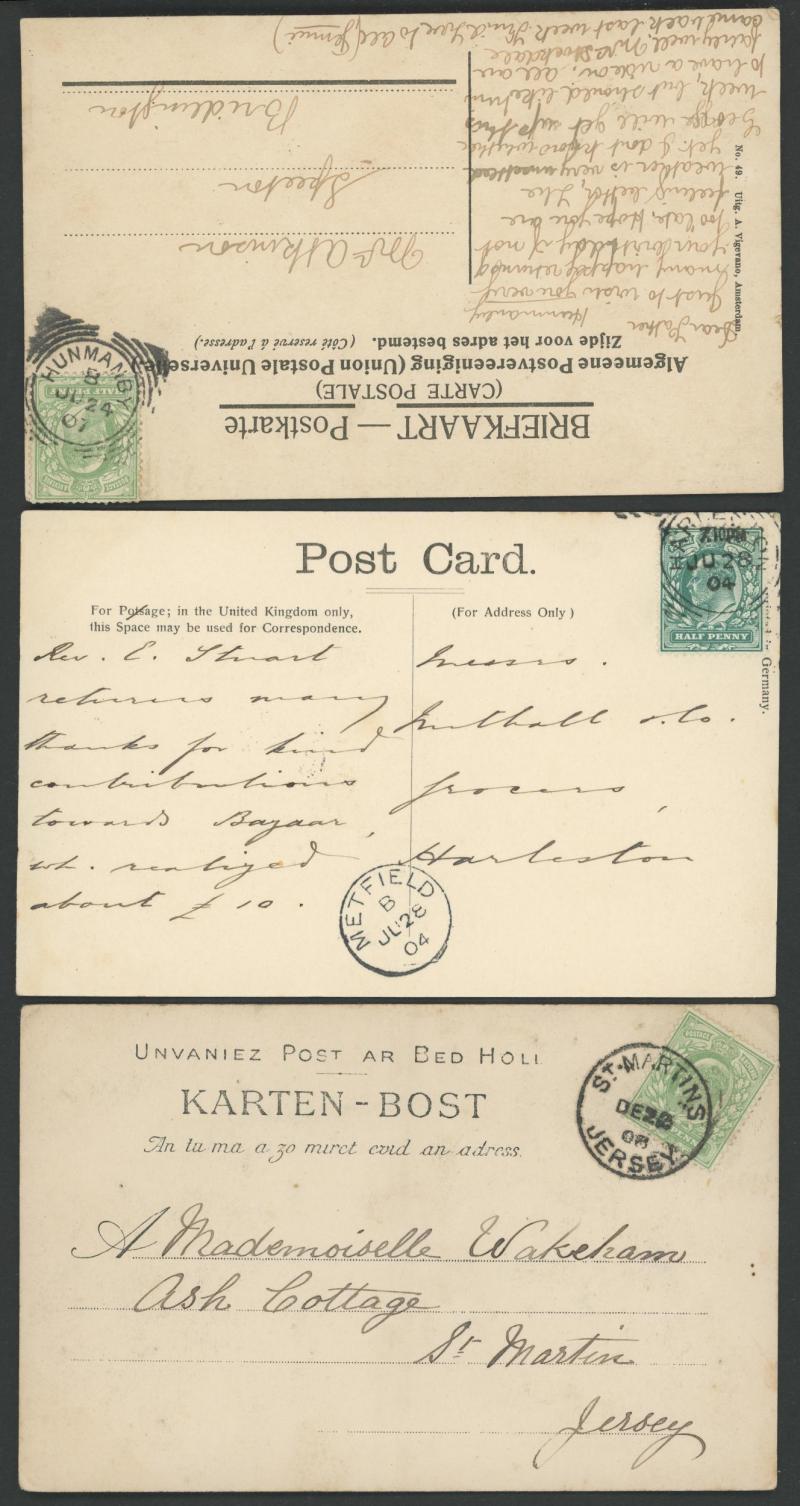 BRIEFKAART — Postkarte
(CARTE POSTALE)
Algemeene Postvereeniging (Union Postale Universelle)
Zijde voor het adres bestemd. (Côté réservé à l'adresse.)
HUNMANBY
B
JL 24
07
HALF PENNY
No. 49. Uitg. A. Vigevano, Amsterdam
Hunmanby
Dear Father
Just to wish you very
many happy returns of
your birthday if not
too late, hope you are
feeling better, The
weather is very unsettled
yet. I dont know whether
George will get up this
week, but should like him
to have a ride on, all are
fairly well, Mrs Stockdale
came back last week
Mr Atkinson
Speeton
Bridlington
Post Card.
For Potsage; in the United Kingdom only,
this Space may be used for Correspondence.
(For Address Only)
7.10PM
JU 28
04
HALF PENNY
Printed in Germany.
Rev. E. Stuart
returns many
thanks for kind
contributions
towards Bazaar,
wh. realized
about £10.
Messrs.
Nuthall & Co.
Grocers,
Harleston
METFIELD
B
JU 28
04
UNVANIEZ POST AR BED HOLL
KARTEN-BOST
An tu ma a zo miret evid an adress.
ST. MARTINS
DE 28
08
JERSEY
POSTAGE
A Mademoiselle Wakeham
Ash Cottage
St Martin
Jersey